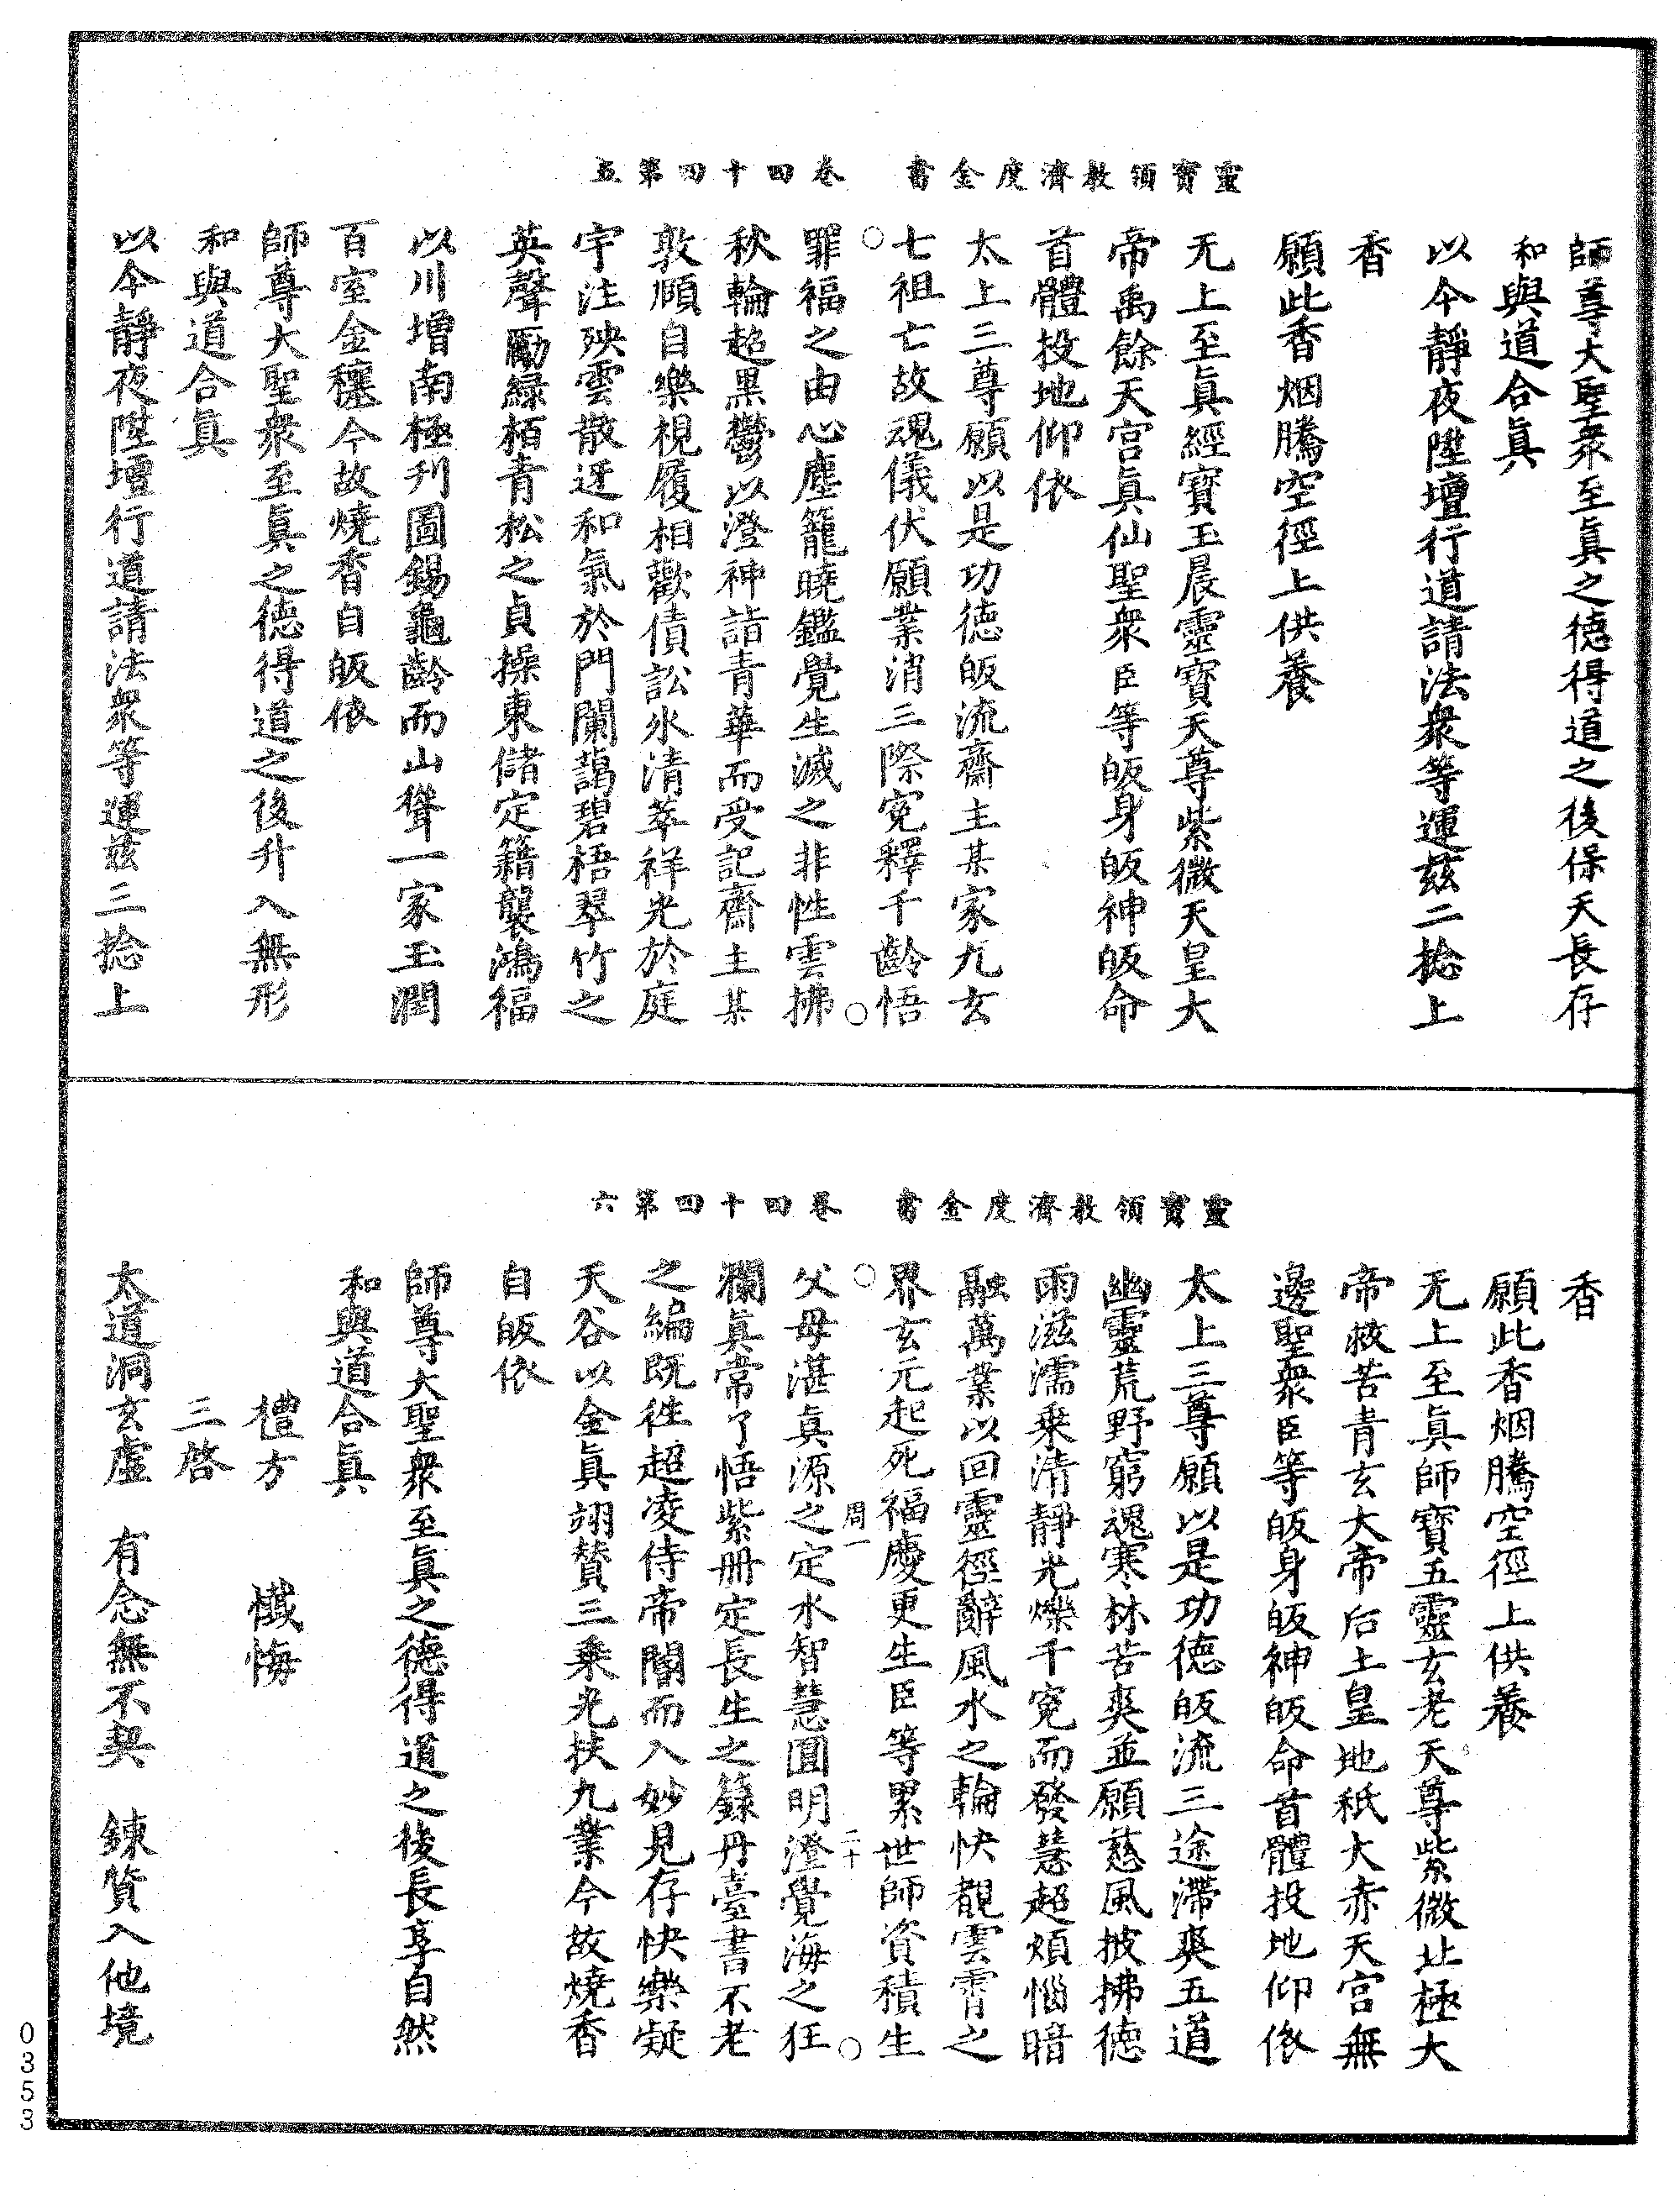 靈寶領教濟度金書　卷四十四第五
師尊大聖衆至眞之德得道之後保天長存
和與道合眞
以今靜夜陞壇行道請法衆等運玆二捻上
香
願此香烟騰空徑上供養
无上至眞經寶玉晨靈寶天尊紫微天皇大
帝禹餘天宮眞仙聖衆臣等皈身皈神皈命
首體投地仰依
太上三尊願以是功德皈流齋主某家九玄
七祖亡故魂儀伏願業消三際寃釋千齡悟
罪福之由心塵籠曉鑑覺生滅之非性雲拂
秋輪超黑鬱以澄神詣青華而受記齋主某
敦順自樂視履相歡債訟氷清萃祥光於庭
宇注殃雲散迓和氣於門闌藹碧梧翠竹之
英聲勵綠栢青松之貞操東儲定籍襲鴻福
以川增南極刋圖錫龜齡而山聳一家玉潤
百室金穰今故燒香自皈依
師尊大聖衆至眞之德得道之後升入無形
和與道合眞
以今靜夜陞壇行道請法衆等運玆三捻上
靈寶領教濟度金書　卷四十四第六
香
願此香烟騰空徑上供養
无上至眞師寶五靈玄老天尊紫微北極大
帝救苦青玄大帝后土皇地祇大赤天宮無
邊聖衆臣等皈身皈神皈命首體投地仰依
太上三尊願以是功德皈流三途滯爽五道
幽靈荒野窮魂寒林苦爽並願慈風披拂德
雨滋濡乘清靜光爍千寃而發慧超煩惱暗
融萬業以回靈徑辭風水之輪快覩雲霄之
界玄元起死福慶更生臣等累世師資積生
周一　二十
父母湛眞源之定水智慧圓明澄覺海之狂
瀾眞常了悟紫册定長生之籙丹臺書不老
之編既徃超凌侍帝闈而入妙見存快樂凝
天谷以全眞翊賛三乘光扶九業今故燒香
自皈依
師尊大聖衆至眞之德得道之後長享自然
和與道合眞
禮方　懺悔
三啓
太道洞玄虛　有念無不契　鍊質入他境
0353